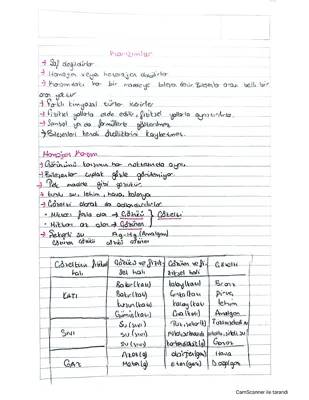 Karışımlar
→ Saf değildirler
→ Homojen veya heterojen olabilirler
→ Karışımdaki her bir maddeye bileşen denir. Bileşenler arası belli bir
oran yoktur
→ Farklı kimyasal türler içerirler
→ Fiziksel yollarla elde edilir, fiziksel yollarla ayrıştırılırlar.
→ Sembol ya da formüllerle gösterilmez
→ Bileşenleri kendi özelliklerini kaybetmez.
Homojen Karışım
→ Görünümü karışımın her noktasında aynı
→ Bileşenler çıplak gözle görülemiyor.
→ Tek madde gibi görünür.
→ tuzlu su, lehim, hava, kolonya
→ Çözelti olarak da adlandırılırlar
• Miktarı fazla olan → Çözücü } Çözelti
• Miktarı az olan → Çözünen
→ Şekerli su Ag-Hg (Amalgam)
Çözünen çözücü çözücü
Çözeltinin fiziksel hali | Çözücü ve fiziksel hali | Çözünen ve fiziksel hali | Çözelti
KATI | Bakır (katı) | kalay (katı) | Bronz
Bakır (katı) | (katı) | Pirinç
(katı) | kalay (katı) | Lehim
Gümüş (katı) | Cıva | Amalgam
SIVI | Su (sıvı)
su (sıvı)
su (sıvı) | karbondioksit (g) | Gazoz
GAZ | Azot (g) | oksijen (g) | Hava
Metan (g) | etan (gaz) | Doğalgaz
CamScanner ile tarandı